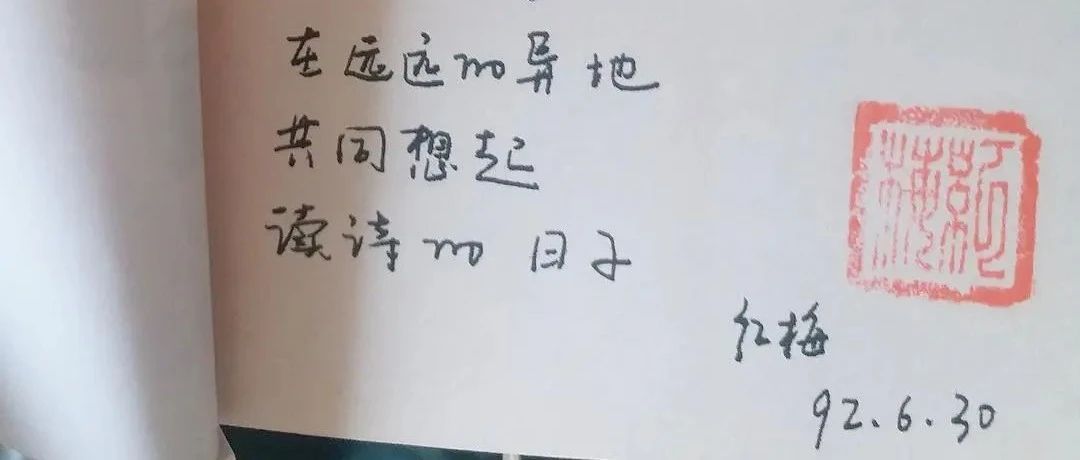 在远远的异地
共同想起
读诗的日子
红梅
92.6.30